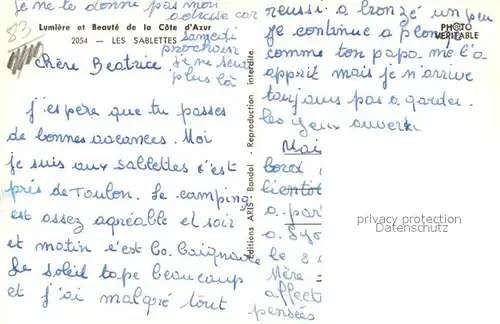 je ne te donne pas mon
adresse car
samedi
prochain
je ne serai
plus là
83
Lumière et Beauté de la Côte d'Azur
2054 - LES SABLETTES
Chère Beatrice
J'espère que tu passes
de bonnes vacances. Moi
je suis aux sablettes c'est
près de Toulon. Le camping
est assez agréable et soir
et matin c'est la baignade
Le soleil tape beaucoup
et j'ai malgré tout
Editions ARIS - Bandol - Reproduction interdite
PHOTO
VERITABLE
reussi a bronzé un peu
je continue a plonger
comme ton papa me l'a
apprit mais je n'arrive
toujours pas a garder
les yeux ouverts
bientôt
a par
a
le 8
Mère
affect
pensées
privacy protection
Datenschutz